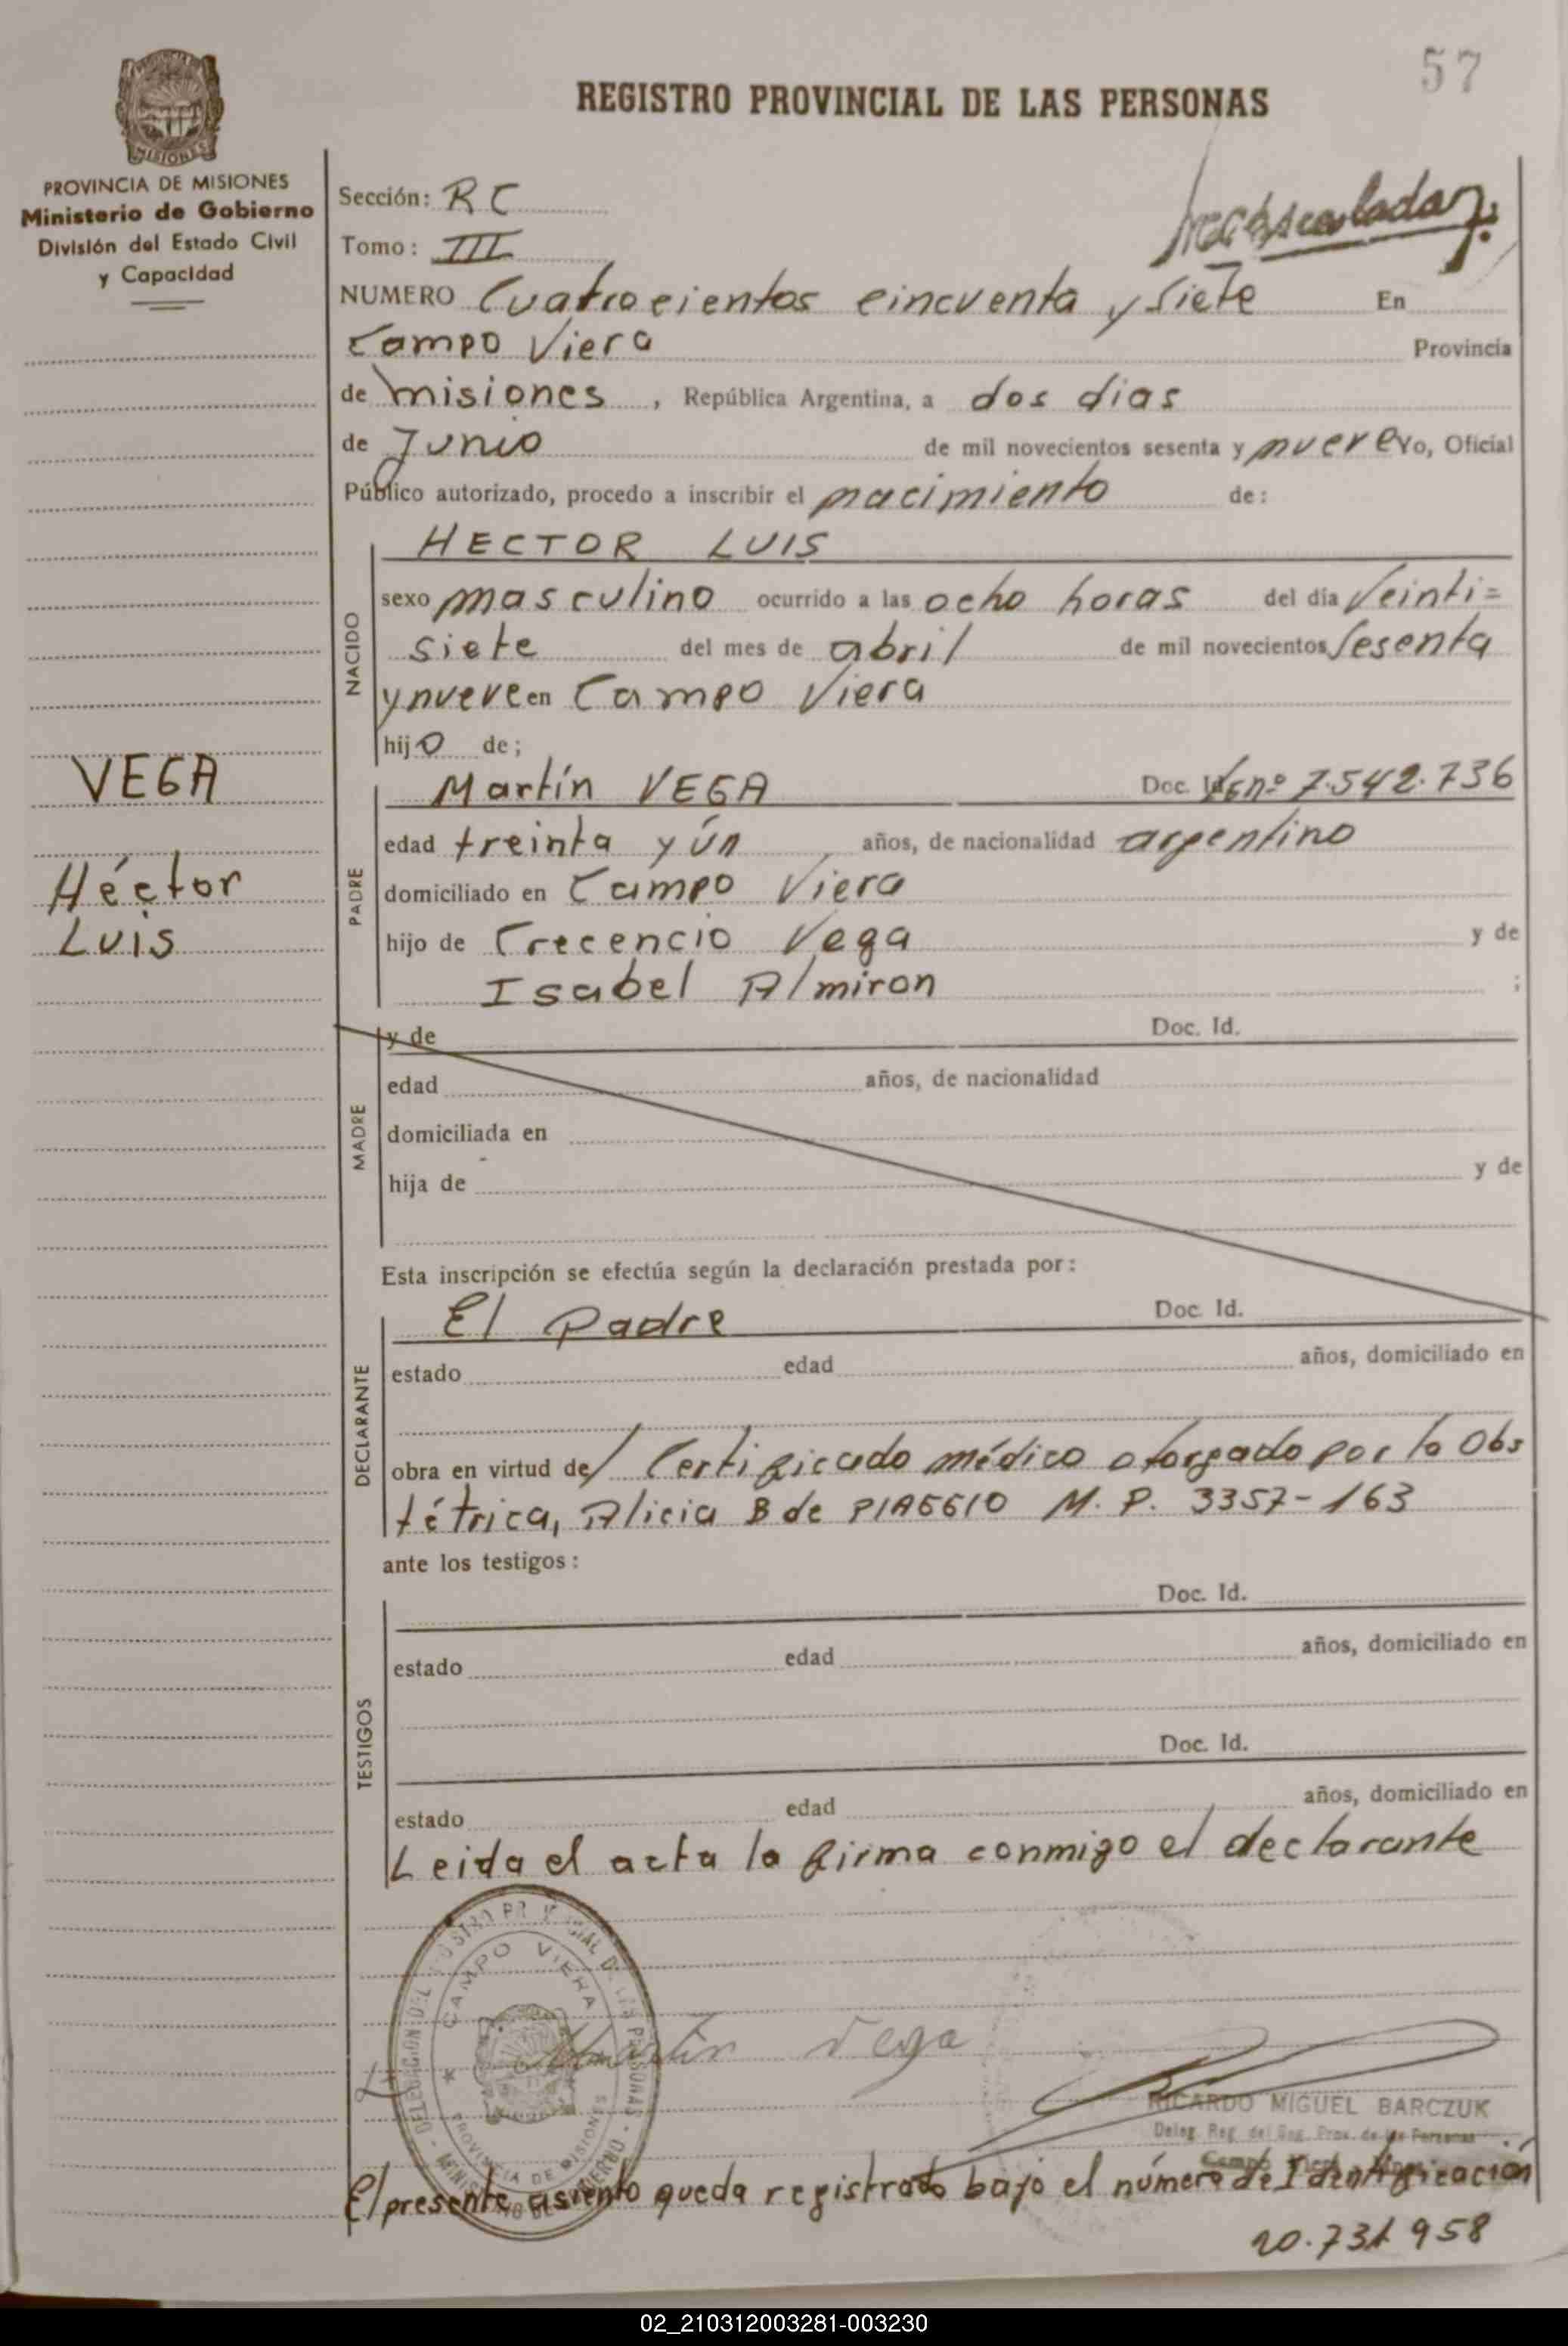 57
REGISTRO PROVINCIAL DE LAS PERSONAS
MISIONES
PROVINCIA DE MISIONES
Ministerio de Gobierno
División del Estado Civil
y Capacidad
VEGA
Héctor
Luis
Sección: RC
Tomo: III
NUMERO Cuatrocientos cincuenta y siete En
Campo Viera Provincia
de misiones, República Argentina, a dos dias
de Junio de mil novecientos sesenta y nueve Yo, Oficial
Público autorizado, procedo a inscribir el nacimiento de:
NACIDO
HECTOR LUIS
sexo masculino ocurrido a las ocho horas del día Veinti=
siete del mes de abril de mil novecientos Sesenta
y nueve en Campo Viera
hijo de;
PADRE
Martín VEGA Doc. Id. nº 7.542.736
edad treinta y ún años, de nacionalidad argentino
domiciliado en Campo Viera
hijo de Crecencio Vega y de
Isabel Almiron ;
MADRE
y de Doc. Id.
edad años, de nacionalidad
domiciliada en
hija de y de
Esta inscripción se efectúa según la declaración prestada por:
DECLARANTE
El Padre Doc. Id.
estado edad años, domiciliado en
obra en virtud de/ Certificado médico otorgado por la Obs
tétrica, Alicia B de M. P. 3357-163
ante los testigos:
TESTIGOS
Doc. Id.
estado edad años, domiciliado en
Doc. Id.
estado edad años, domiciliado en
Leida el acta la firma conmigo el declarante
DELEGACION DEL REGISTRO PROVINCIAL DE LAS PERSONAS - MINISTERIO DE GOBIERNO -
CAMPO VIERA
PROVINCIA DE MISIONES
Martin Vega
RICARDO MIGUEL BARCZUK
Deleg. Reg. del Reg. Prov. de las Personas
Campo Viera
El presente asiento queda registrado bajo el número de Identificación
20.731.958
02_210312003281-003230